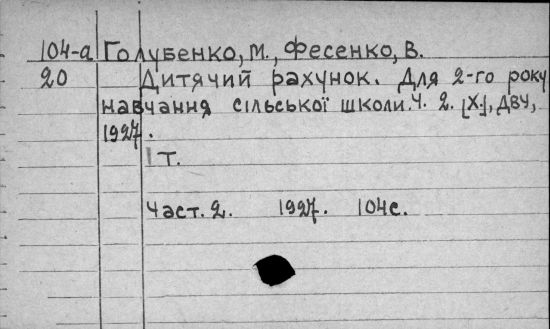 104-а Голубенко, М., Фесенко, В.
20 Дитячий рахунок. Для 2-го року
навчання сільської школи. Ч. 2. [Х.], ДВУ,
1927.
1 т.
Част. 2. 1927. 104с.